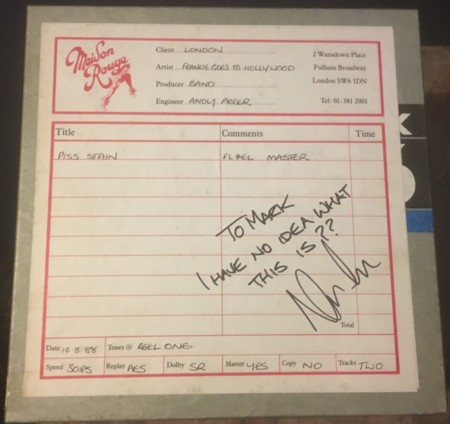 Maison Rouge
Client LONDON
Artist FRANKIE GOES TO HOLLYWOOD
Producer BAND
Engineer ANDY
2 Wansdown Place
Fulham Broadway
London SW6 1DN
Tel: 01-381 2001
Title Comments Time
PISS STAIN MASTER
TO MARK
I HAVE NO IDEA WHAT
THIS IS??
Total
Date 10.5.88 Tones @ REEL ONE
Speed 30IPS Replay AES Dolby SR Master YES Copy NO Tracks TWO